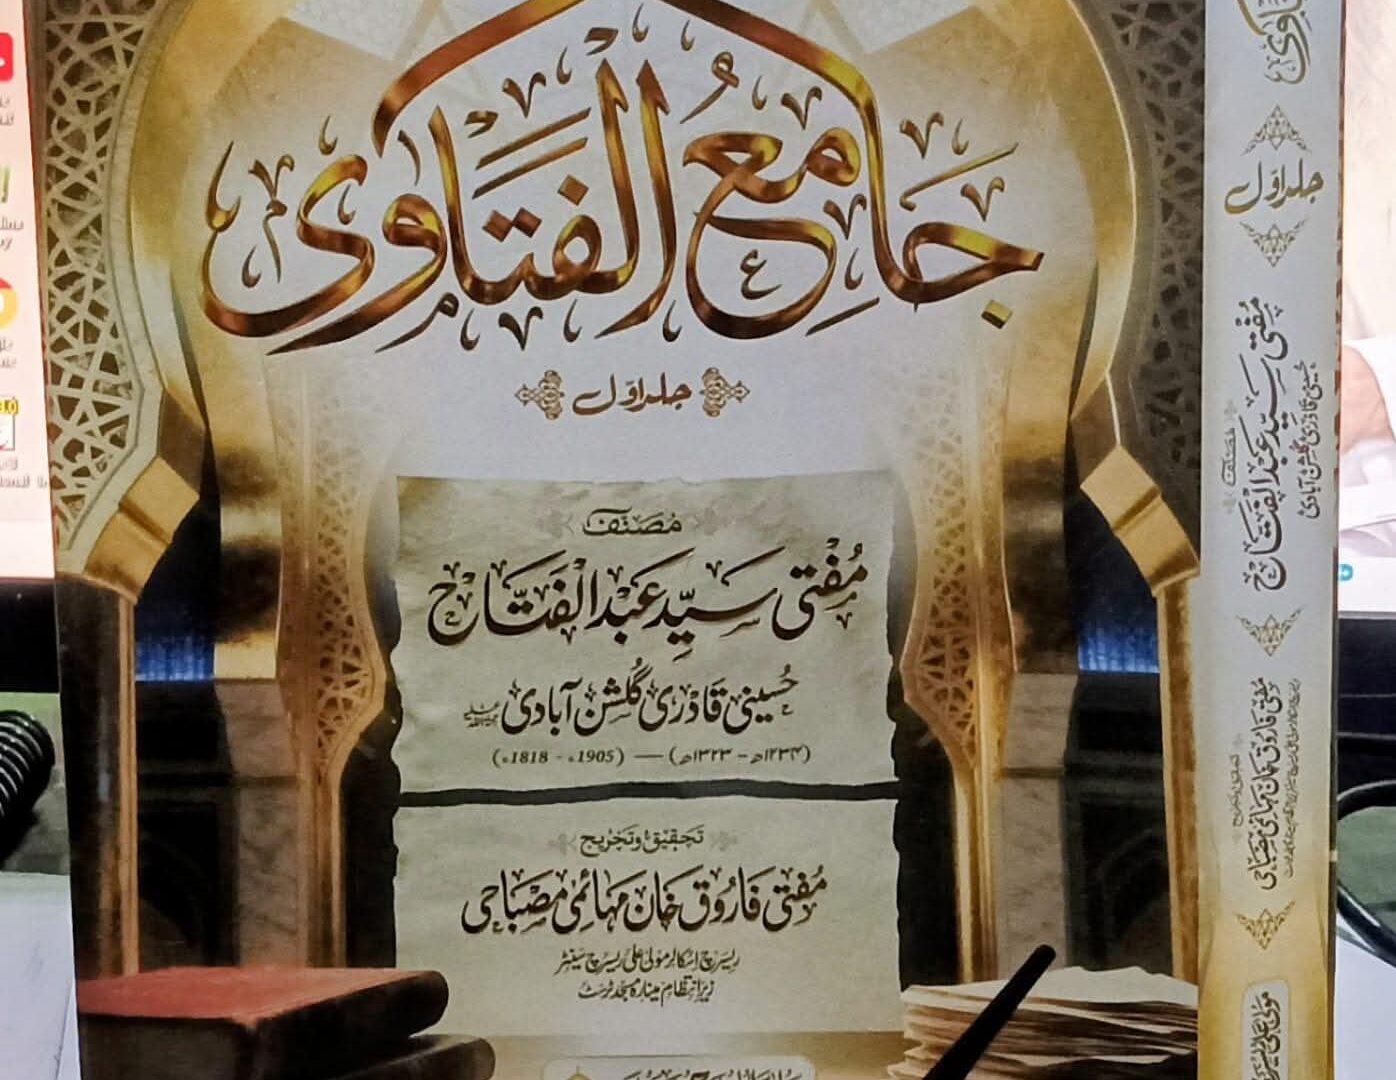 جامع الفتاوی
جلد اوّل
مُصَنِّف
مُفتی سیّد عبد الفتّاح
حُسینی قادری گلشن آبادی
(۱۲۳۴ھ - ۱۳۲۳ھ) — (1818ء - 1905ء)
تحقیق و تخریج
مُفتی فاروق خان مہائمی مصباحی
ریسرچ اسکالر مولیٰ علی ریسرچ سینٹر
زیر انتظام مینارہ مسجد ٹرسٹ
جلد اوّل
مصنف
مُفتی سیّد عبد الفتّاح
حسینی قادری گلشن آبادی
تحقیق و تخریج
مُفتی فاروق خان مہائمی مصباحی